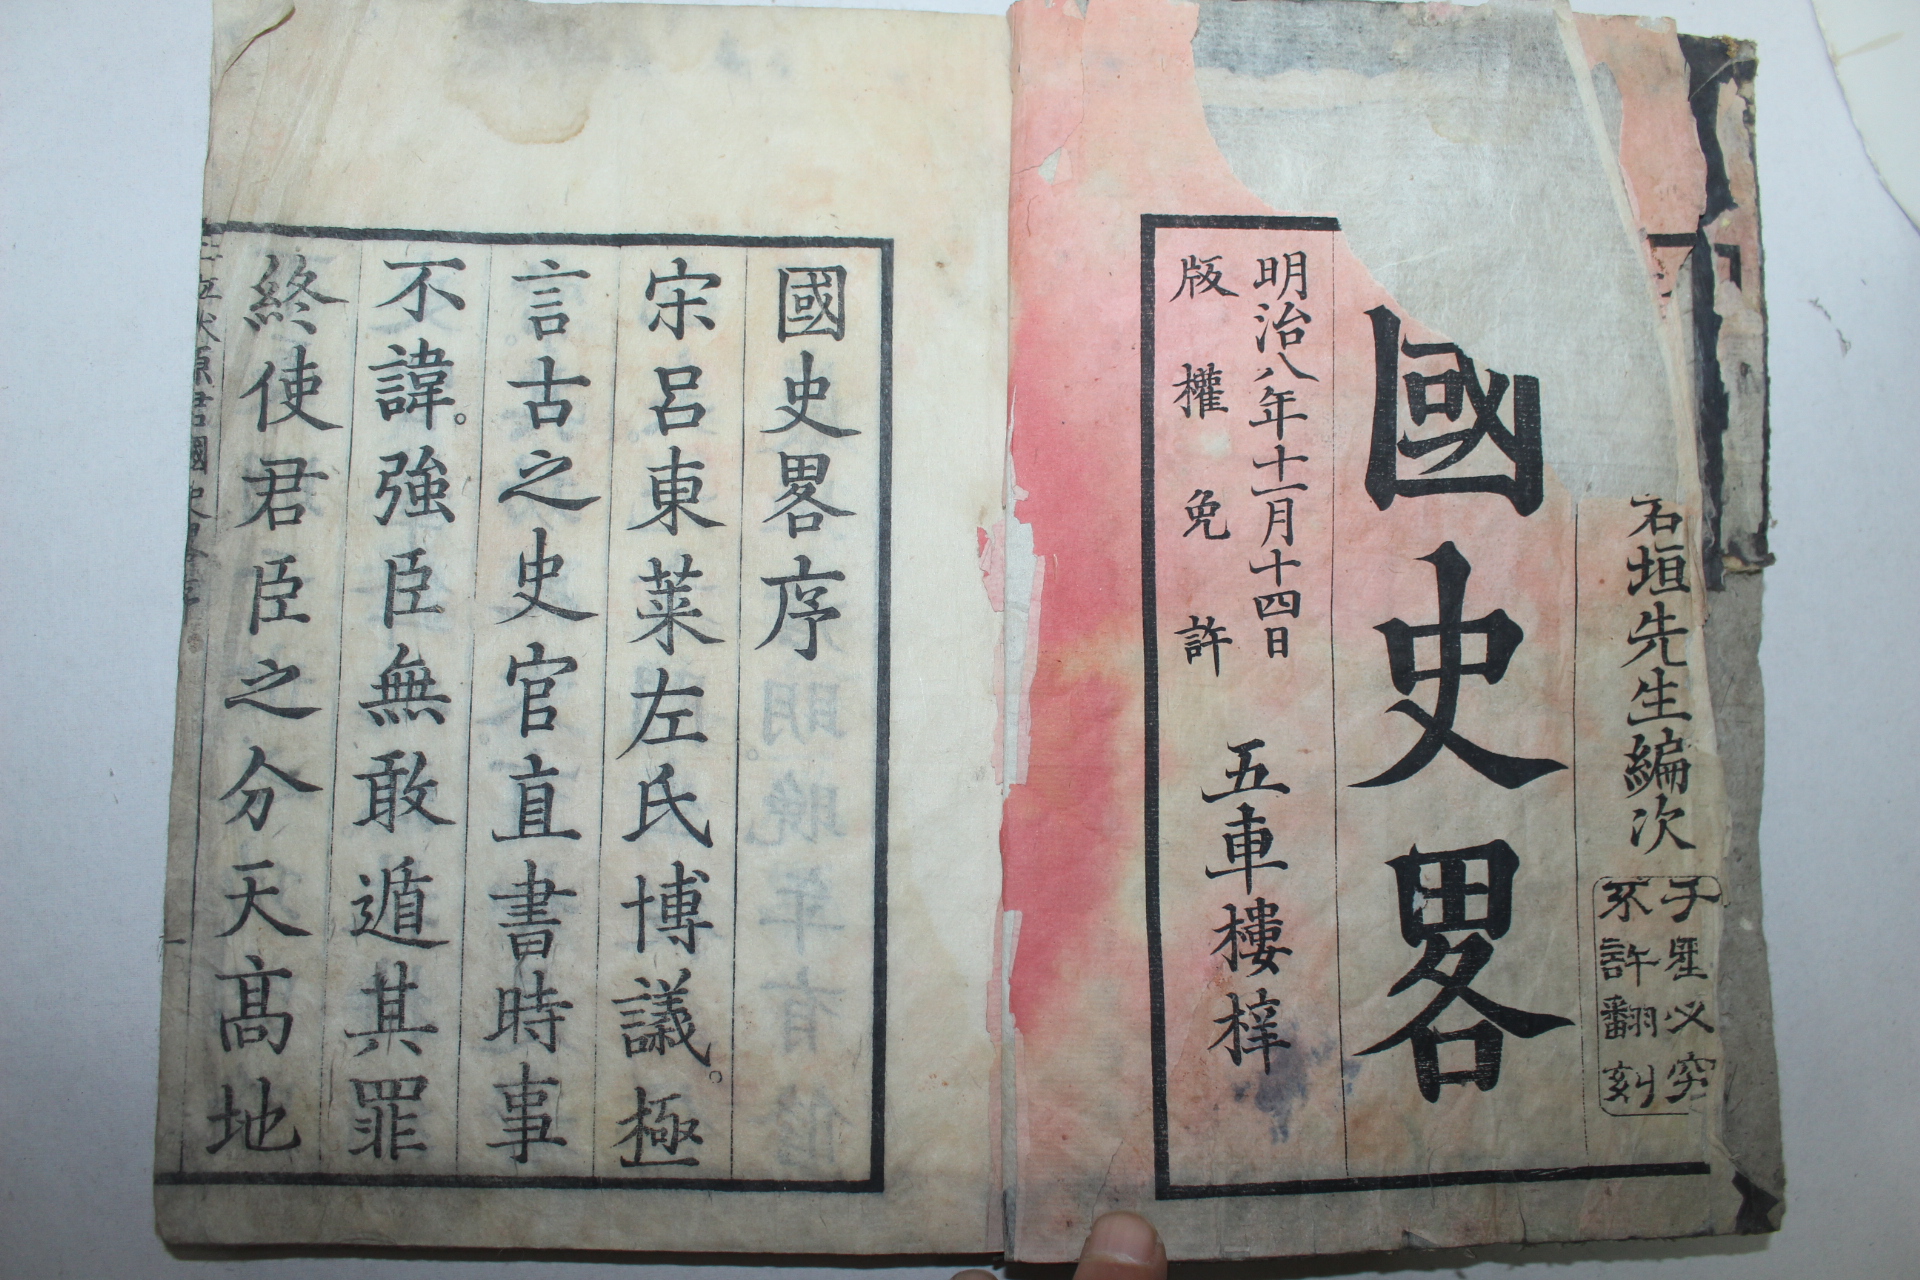 石垣先生編次
子産必究
不許翻刻
國史畧
明治八年十一月十四日
版權免許
五車樓梓
國史畧序
宋呂東萊左氏博議。極
言古之史官直書時事
不諱。強臣無敢遁其罪
終使君臣之分天高地